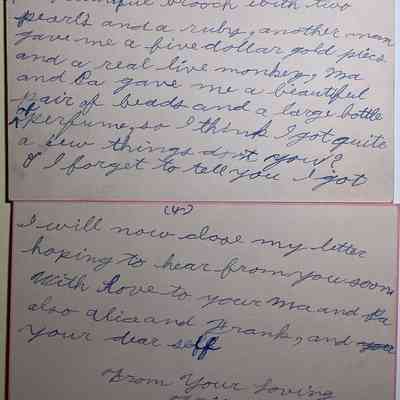 brooch with two
pearls and a ruby, another man
gave me a five dollar gold piece
and a real live monkey, Ma
and Pa gave me a beautiful
pair of beads and a large bottle
of perfume, so I think I got quite
a few things don't you?
O I forget to tell you I got
(4)
I will now close my letter
hoping to hear from you soon
With Love to your Ma and Pa
also Alice and Frank, and your
your dear self
From Your Loving